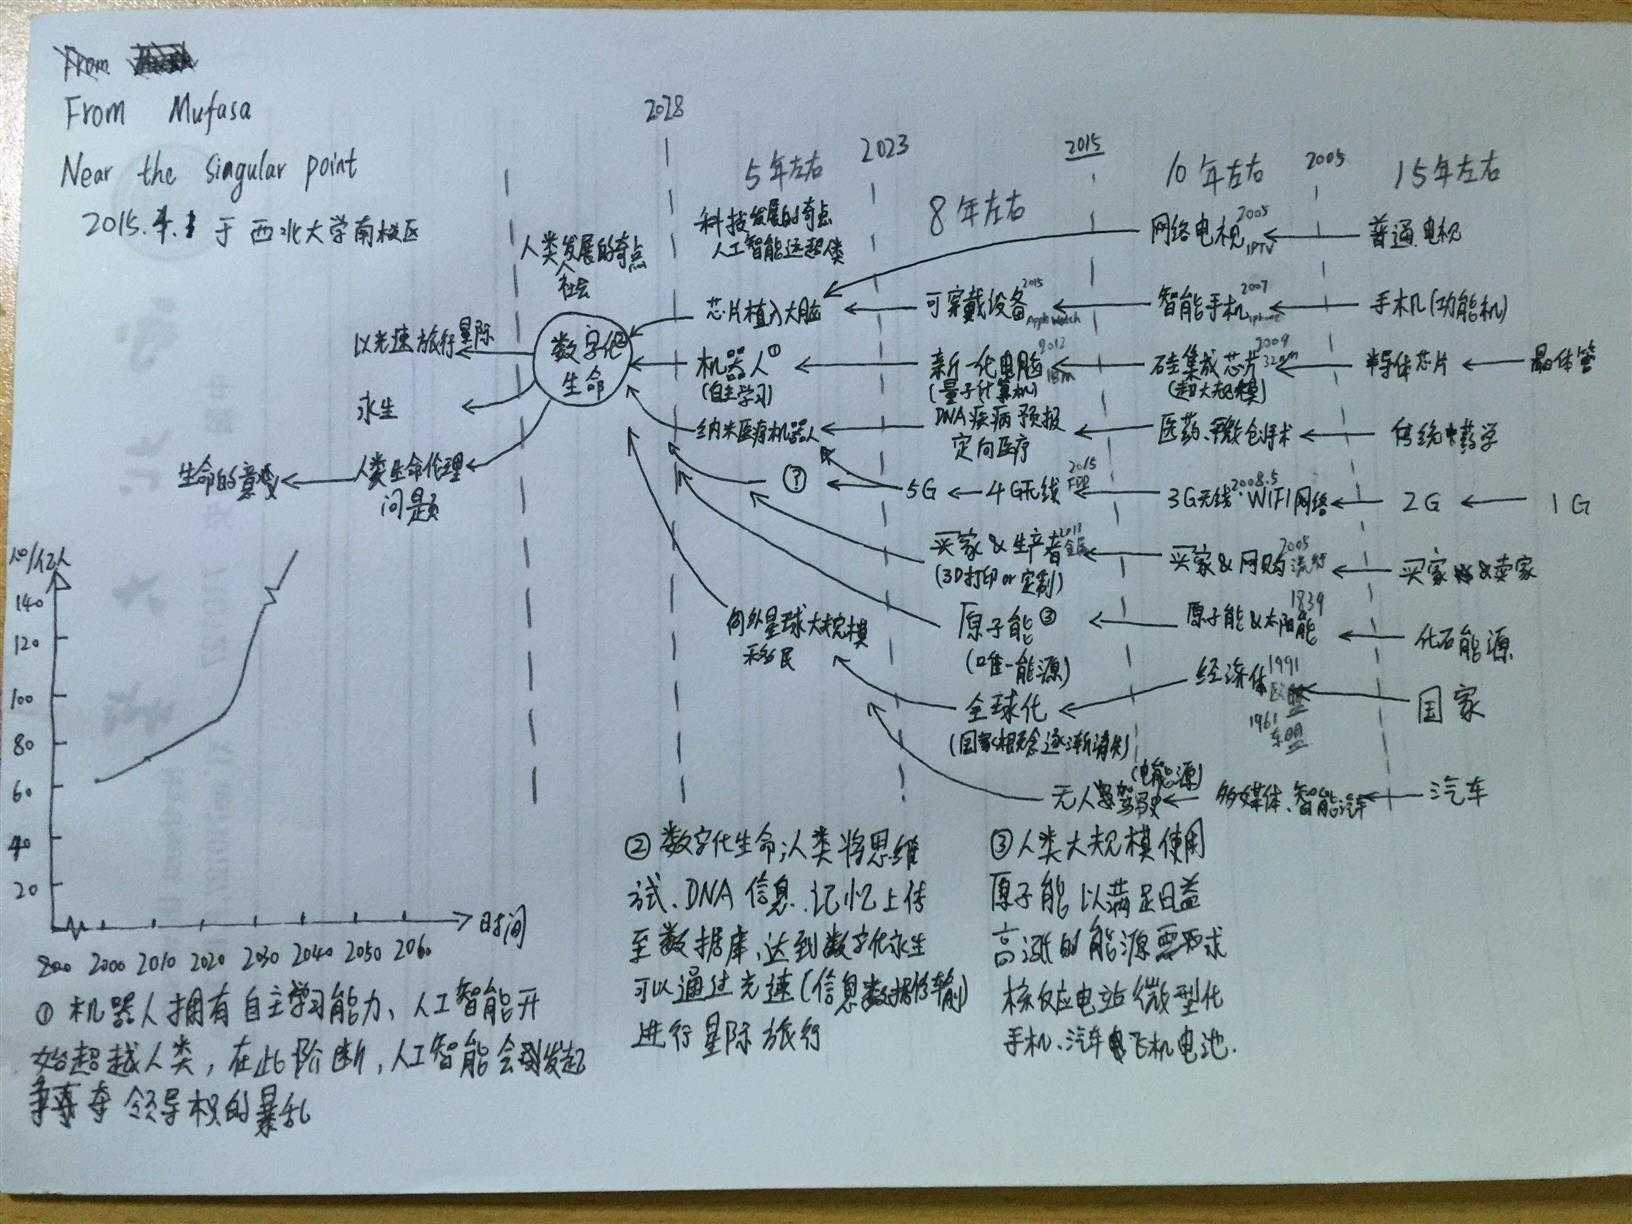 From
From Mufasa
Near the singular point
2015.4.1 于西北大学南校区
2028
5年左右
2023
8年左右
2015
10年左右
2005
15年左右
人类发展的奇点
社会
科技发展的奇点
人工智能远超人类
网络电视 2005 IPTV
普通电视
芯片植入大脑
可穿戴设备 2015 Apple Watch
智能手机 2007 iphone
手机(功能机)
以光速旅行星际
数字化
生命
②
机器人①
(自主学习)
新一代电脑 2012 IBM
(量子计算机)
硅集成芯片 2009 32nm
(超大规模)
半导体芯片
晶体管
永生
纳米医疗机器人
DNA疾病预报
定向医疗
医药、微创手术
传统药学
生命的意义
人类生命伦理
问题
?
5G
4G无线 2015 FDD
3G无线 2008.5 WIFI网络
2G
1G
买家&生产者 2013
(3D打印or定制)
买家&网购 2005 流行
买家&卖家
向外星球大规模
移民
原子能③
(唯一能源)
原子能&太阳能 1839
化石能源
全球化
(国家概念逐渐消失)
经济体 1991 欧盟
1961 东盟
国家
(电能源)
无人驾驶
多媒体、智能汽车
汽车
人口/亿人
140
120
100
80
60
40
20
时间
2000 2010 2020 2030 2040 2050 2060
①机器人拥有自主学习能力、人工智能开
始超越人类，在此阶断，人工智能会发起
争夺领导权的暴乱
②数字化生命；人类将思维
试、DNA信息、记忆上传
至数据库、达到数字化永生
可以通过光速(信息数据传输)
进行星际旅行
③人类大规模使用
原子能以满足日益
高涨的能源要求
核反应电站微型化
手机、汽车飞机电池.